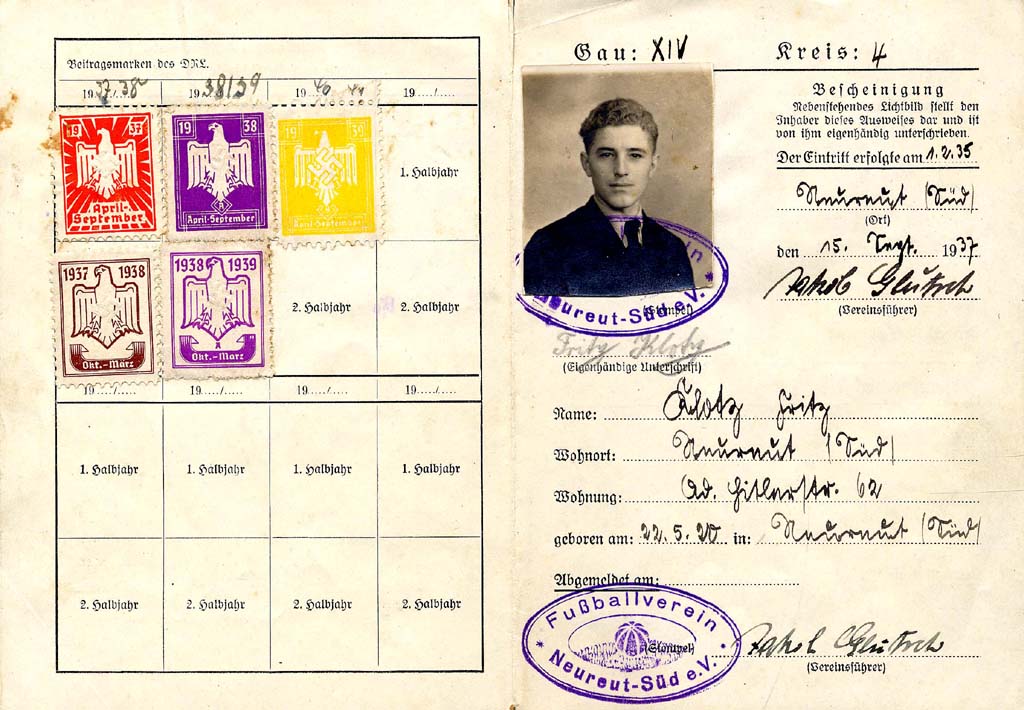 Beitragsmarken des DRL.
1937/38 1938/39 1940/41 19..../....
1937
April-
September
1938
April-September
1939
April-September
1. Halbjahr
1937 1938
Okt.-März
1938 1939
Okt.-März
2. Halbjahr 2. Halbjahr
19..../.... 19..../.... 19..../.... 19..../....
1. Halbjahr 1. Halbjahr 1. Halbjahr 1. Halbjahr
2. Halbjahr 2. Halbjahr 2. Halbjahr 2. Halbjahr
Gau: XIV Kreis: 4
Bescheinigung
Nebenstehendes Lichtbild stellt den
Inhaber dieses Ausweises dar und ist
von ihm eigenhändig unterschrieben.
Der Eintritt erfolgte am 1.2.35
Neureut (Süd)
(Ort)
den 15. Sept. 1937
Jakob Glutsch
(Vereinsführer)
ein
Neureut-Süd e.V.
(Stempel)
Fritz Klotz
(Eigenhändige Unterschrift)
Name: Klotz Fritz
Wohnort: Neureut (Süd)
Wohnung: Ad. Hitlerstr. 62
geboren am: 22.5.20 in: Neureut (Süd)
Abgemeldet am:
Fußballverein
Neureut-Süd e.V.
(Stempel)
Jakob Glutsch
(Vereinsführer)